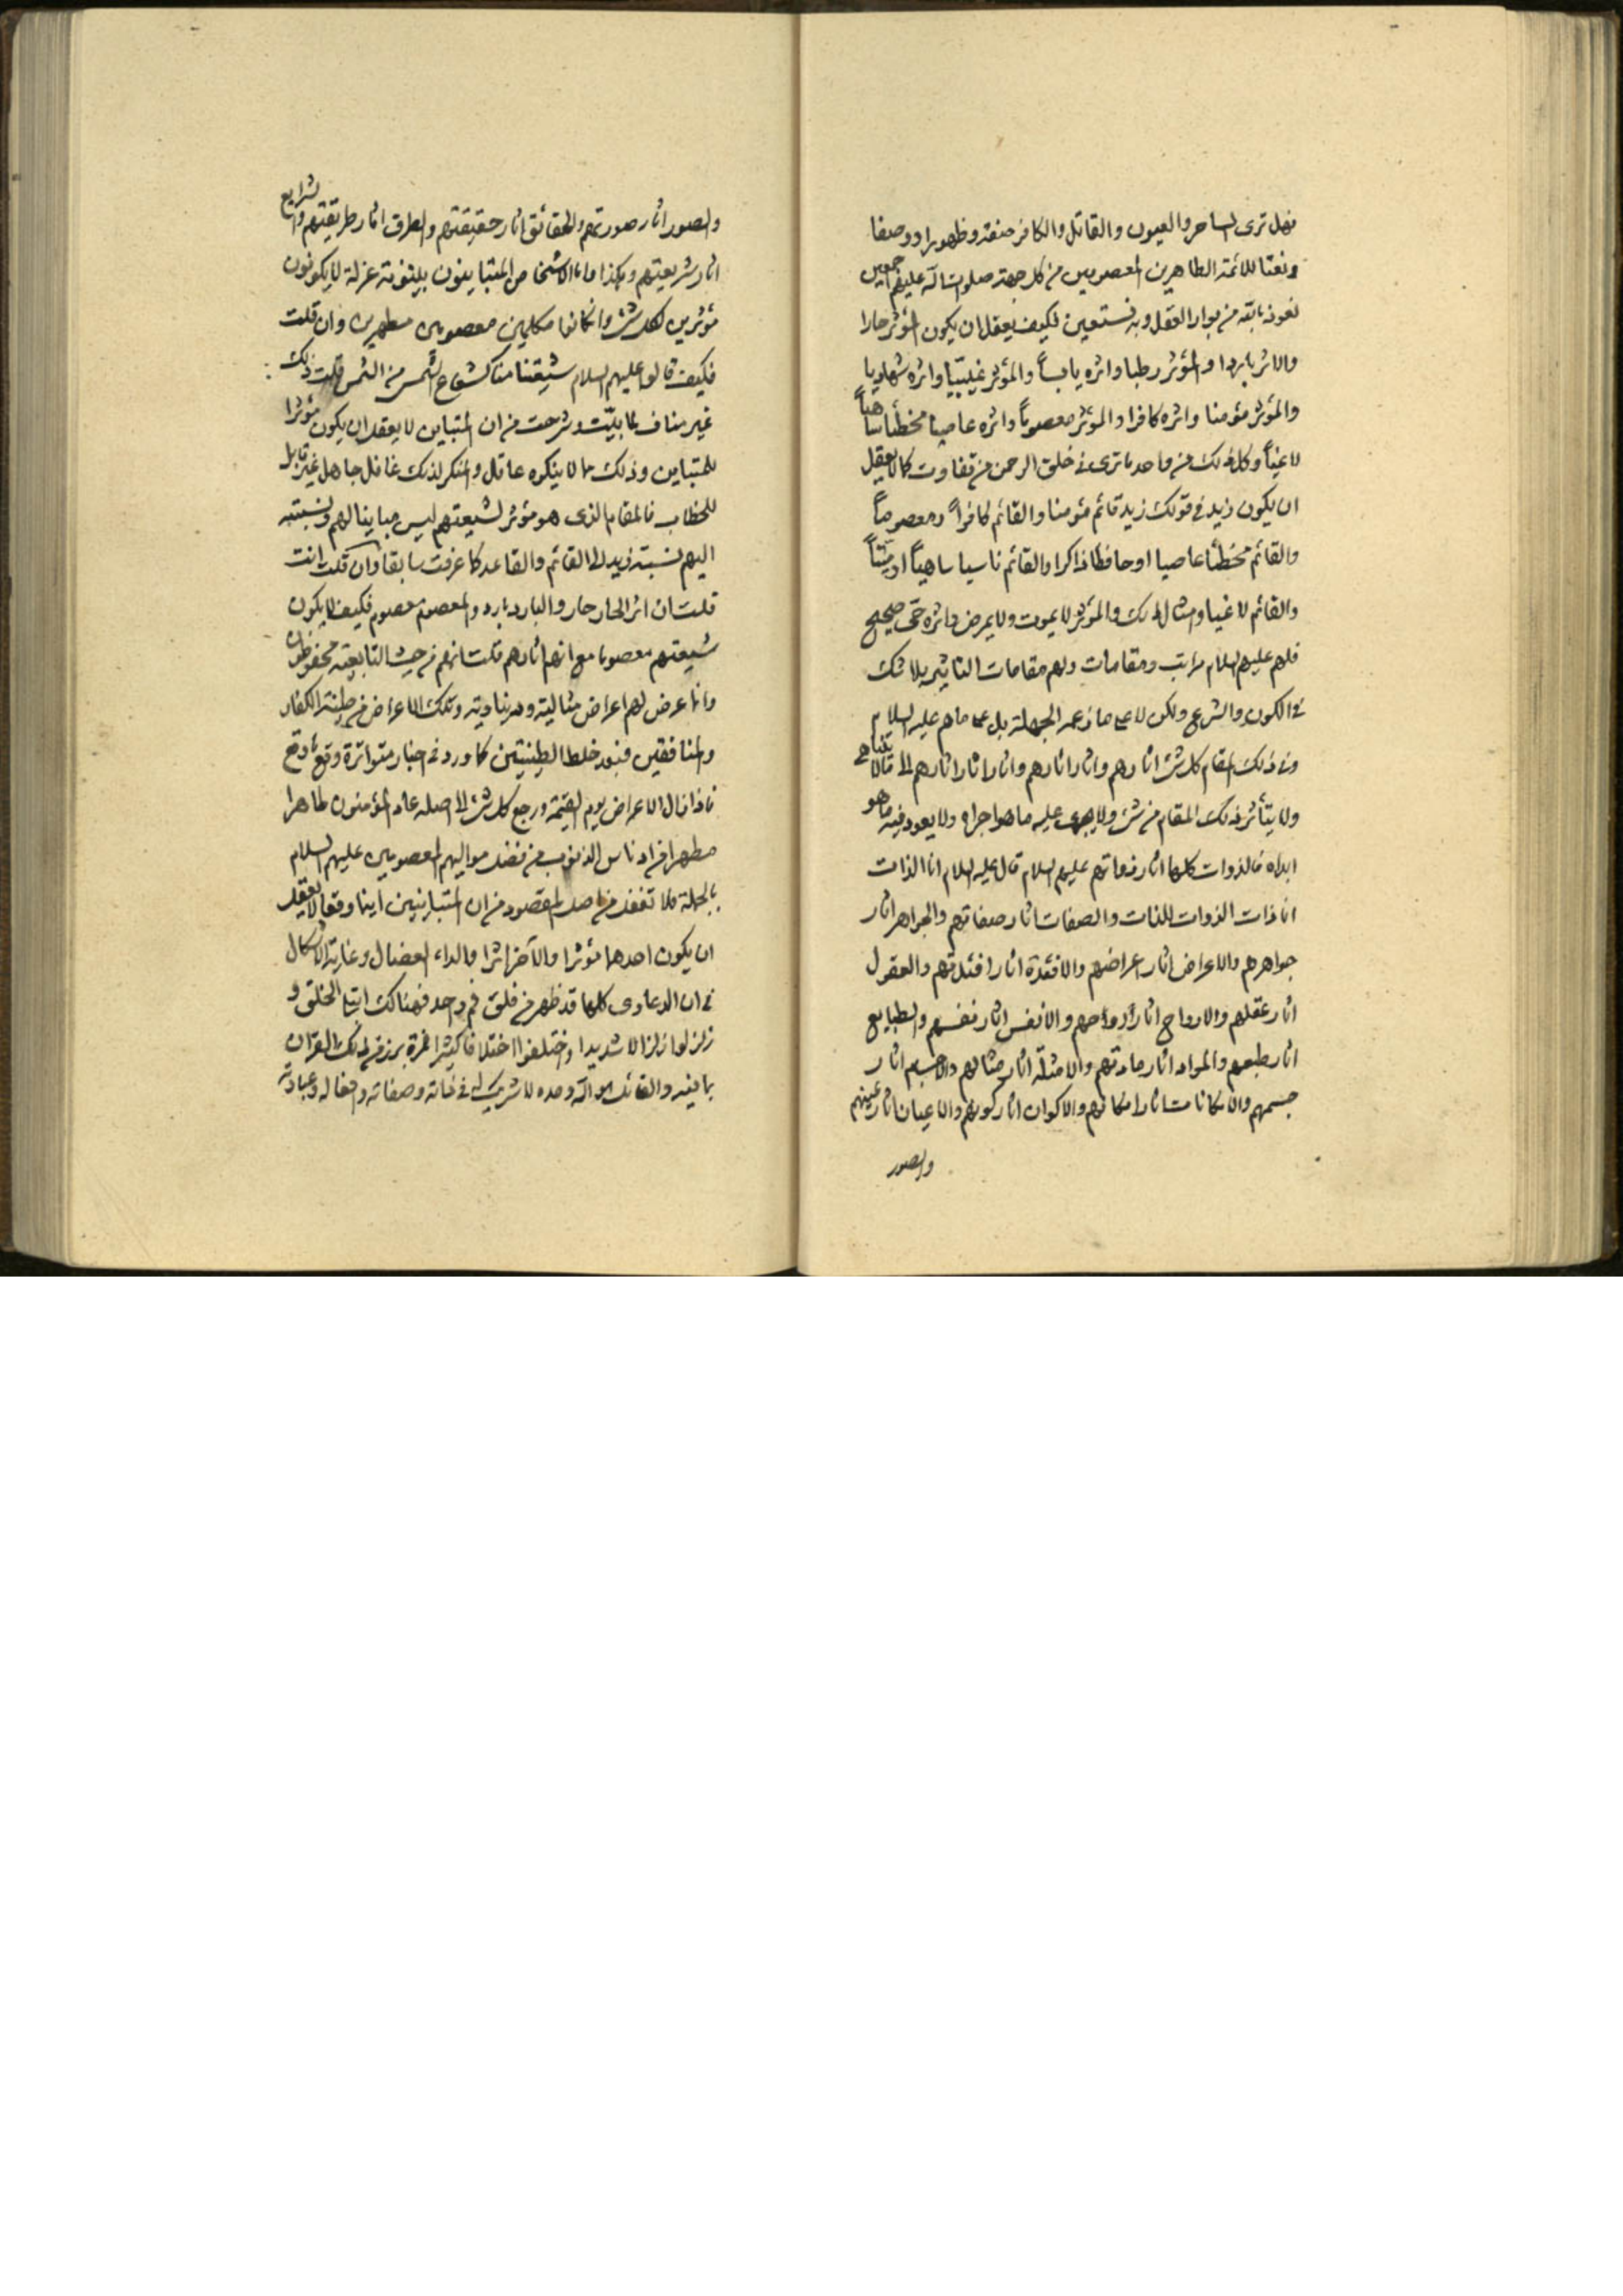 فهل ترى الساحر والعيون والقاتل والكافر صفة وظهورا ووصفا
ونعتا للائمة الطاهرين المعصومين من كل جهة صلوات الله عليهم اجمعين
نعوذ بالله من بوار العقل وبه نستعين فكيف يعقل ان يكون المؤثر حارا
والاثر باردا والمؤثر رطبا واثره يابساً والمؤثر غيبيّا واثره شهاديا
والمؤثر مؤمنا واثره كافرا والمؤثر معصوماً واثره عاصيا مخطئا ساهياً
لاغياً وكل ذلك من واحد ما ترى في خلق الرحمن من تفاوت كما لا يعقل
ان يكون زيد في قولك زيد قائم مؤمنا والقائم كافراً ومعصوماً
والقائم مخطئا عاصيا او حافظا ذاكرا والقائم ناسيا ساهياً او ميّتاً
والقائم لاغيا وامثال ذلك والمؤثر لا يموت ولا يمرض واثره حتى صحيح
فلهم عليهم السلام مراتب ومقامات ولهم مقامات التاثير بلا شك
في الكون والشرع ولكن لا على ما زعمه الجهلة بل على ما هم عليه السلام
وفي ذلك المقام كل شئ اثارهم واثار اثارهم واثار اثار اثارهم الى ما لا يتناهى
ولا يتأثر ذلك المقام من شئ ولا يجرى عليه ما هو اجراه ولا يعود فيه ما هو
ابداه فالذوات كلها اثار ذواتهم عليهم السلام قال عليه السلام انا الذات
انا ذات الذوات للذات والصفات اثار صفاتهم والجواهر اثار
جواهرهم والاعراض اثار اعراضهم والافئدة اثار افئدتهم والعقول
اثار عقلهم والارواح اثار ارواحهم والانفس اثار نفسهم والطبايع
اثار طبعهم والمواد اثار مادتهم والامثلة اثار مثالهم والاجسام اثار
جسمهم والامكانات اثار امكانهم والاكوان اثار كونهم والاعيان اثار عينهم
والصور
والصور اثار صورتهم والحقائق اثار حقيقتهم والطرق اثار طريقتهم والشرايع
اثار شريعتهم وهكذا واما الاشخاص المتباينون بينونة عزلة لا يكونون
مؤثرين لكل شئ وان كانوا مكلمين معصومين مطهرين وان قلت
فكيف قالوا عليهم السلام شيعتنا منا كشعاع الشمس من الشمس قلت ذلك
غير مناف لما بيّنت وشرحت من ان المتباين لا يعقل ان يكون مؤثرا
للمتباين وذلك مما لا ينكره عاقل والمنكر لذلك غافل جاهل غير قابل
للخطاب فالمقام الذى هو مؤثر لشيعتهم ليس مباينا لهم ونسبته
اليهم نسبة زيد الى القائم والقاعد كما عرفت سابقا وان قلت انت
قلت ان اثر الحار حار والبارد بارد والمعصوم معصوم فكيف لا يكون
شيعتهم معصوما مع انهم اثارهم قلت انهم من حيث التابعية محفوظون
وانما عرض لهم اعراض مثالية ودنياوية وتلك الاعراض من طينة الكفار
والمنافقين فبعد خلط الطينتين كما ورد في اخبار متواترة وقع ما وقع
فاذا زال الاعراض يوم القيمة ورجع كل شئ الى اصله عاد المؤمنون طاهرا
مطهرا من ادناس الذنوب من فضل مواليهم المعصومين عليهم السلام
بالجملة فلا تغفل من اصل المقصود من ان المتباينين اينما وقعا لا يعقل
ان يكون احدهما مؤثرا والآخر اثرا والداء العضال وغاية الاشكال
في ان الدعاوى كلها قد ظهر من فلق فم واحد فهنالك ابتلى الخلق و
زلزلوا زلزالا شديدا واختلفوا اختلافا كثيرا
بما فيه والقائل هو الله وحده لا شريك له في ذاته وصفاته وافعاله وعبادته